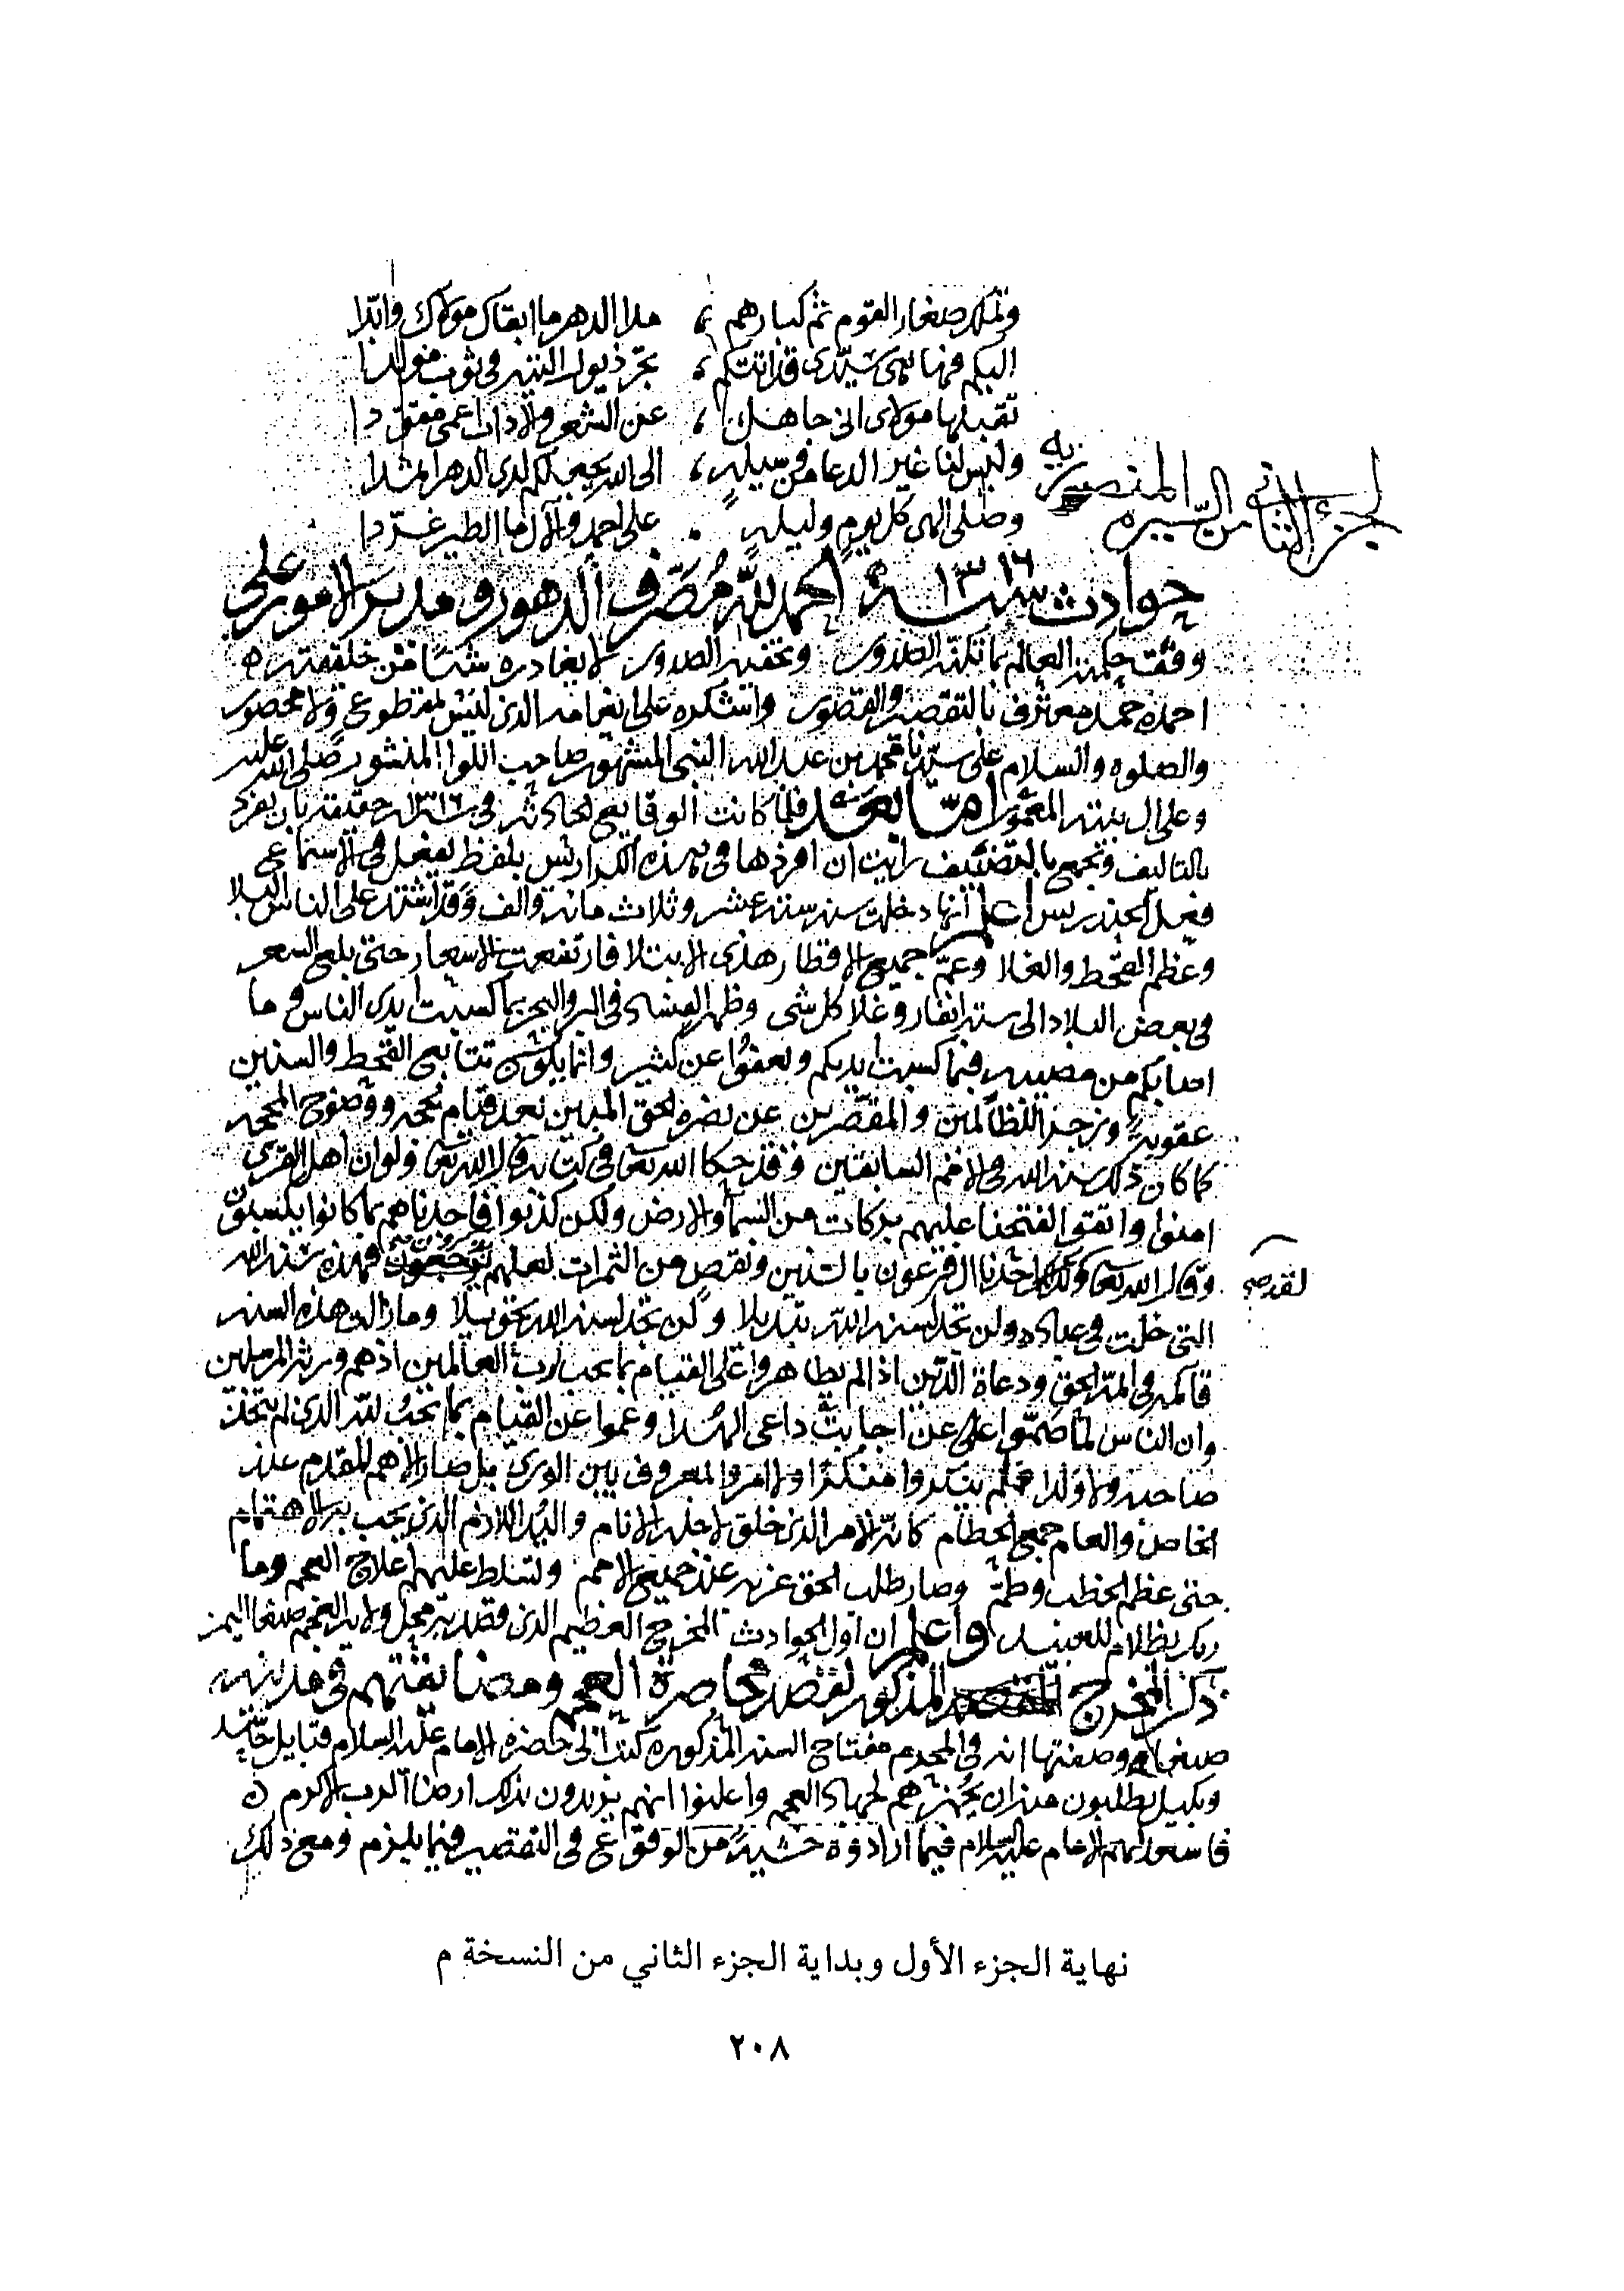 وتملك صغار القوم ثم كبارهم ، مدا الدهر ما ابقاك مولاك وابّدا
اليكم فهاهي سيّدى قد اتتكم ، تجرّ ذيول التيه فى ثوب
تقبلها مولاى انى جاهل ، عن الشعر ولا ذات اعمى
وليس لنا غير الدعا من وسيله ، الى الله يحييكم لدى الدهر
وصلى الهى كل يوم وليله . على احمد والآل ما الطير غرّدا
الجزء الثانى من السيره المنصوريه
حوادث سنة ١٣١٦ الحمد لله مُصَرّف الدهور ومدبر الامور على
وفق حكمته العالم بما تكنّه الصدور وتخفيه الصدور لا يغادره شيئا من خليقته
احمده حمد معترف بالتقصير والقصور واشكره على انعامه الذى ليس بمقطوع ولا محصور
والصلوه والسلام على سيّدنا محمد بن عبد الله النبى المشهور صاحب اللوا المنشور صلى الله عليه
وعلى ال بيته المعمور امّا بعد فلما كانت الوقايع الحادثه فى سنة ١٣١٦ حقيقة بان تفرد
بالتاليف وتجمع بالتصنيف رايت ان افردها فى هذه الكراريس بلفظ يفعل فى الاسماع
فعل الخندريس اعلم انها دخلت سنة ستة عشر وثلاث مائة والف وقد اشتد على الناس البلا
وعظم القحط والغلا وعمّ جميع الاقطار هذى الابتلا فارتفعت الاسعار حتى بلغ السعر
فى بعض البلاد الى ستة انفار وغلا كل شى وظهر الفساد فى البر والبحر بما كسبت ايدى الناس وما
اصابكم من مصيبه فبما كسبت ايديكم ويعفوا عن كثير وانما يكون تتابع القحط والسنين
عقوبة وزجر للظالمين والمقصرين عن نصرة الحق المبين بعد قيام الحجه ووضوح المحجه
كما كان ذلك سنة الله فى الامم السابقين وقد حكا الله تعالى فى كتابه قال الله تعالى ولو ان اهل القرى
امنوا واتقوا لفتحنا عليهم بركات من السما والارض ولكن كذبوا فاخذناهم بما كانوا يكسبون
وقال الله تعالى ولقد اخذنا ال فرعون بالسنين ونقص من الثمرات لعلهم يذكرون فهذه سنة الله
لقد صح
التى خلت فى عباده ولن تجد لسنة الله تبديلا ولن تجد لسنة الله تحويلا وما زالت هذه السنه
قائمة فى ائمة الحق ودعاة الدين اذا لم يظاهروا على القيام بما يجب لرب العالمين اذ هم ورثة المرسلين
وان الناس لما صمّوا عن اجابة داعى الهدا وعموا عن القيام بما يجب لله الذى لم يتخذ
صاحبة ولا ولدا فلم ينكروا منكرا ولا امروا بمعروف بين الورى بل صار الاهم المقدم عند
الخاص والعام جمع الحطام كانه الامر الذى خلق لاجله الانام والبُد اللازم الذى يجب به الاهتمام
حتى عظم الخطب وطمّ وصار طلب الحق عزيز عند جميع الامم وتسلط عليهم اعلاج العجم وما
ربك بظلام للعبيد واعلم ان اول الحوادث المخرج العظيم الذى قصد به محل ولاية العجم صنعا اليمن
ذكر المخرج المذكور لقصد محاصرة العجم ومضايقتهم فى مدينة
صنعا وصفتها انه فى المحرم مفتاح السنه المذكوره كتب الى حضرة الامام عليه السلام قبايل حاشد
وبكيل يطلبون منه ان يجهزهم لجهاد العجم واعلنوا انهم يريدون بذلك ارضا الرب الاكرم
فاسعدهم الامام عليه السلام فيما ارادوه خشية من الوقوع فى التقصير فيما يلزم ومع ذلك
نهاية الجزء الأول وبداية الجزء الثاني من النسخة م
٢٠٨